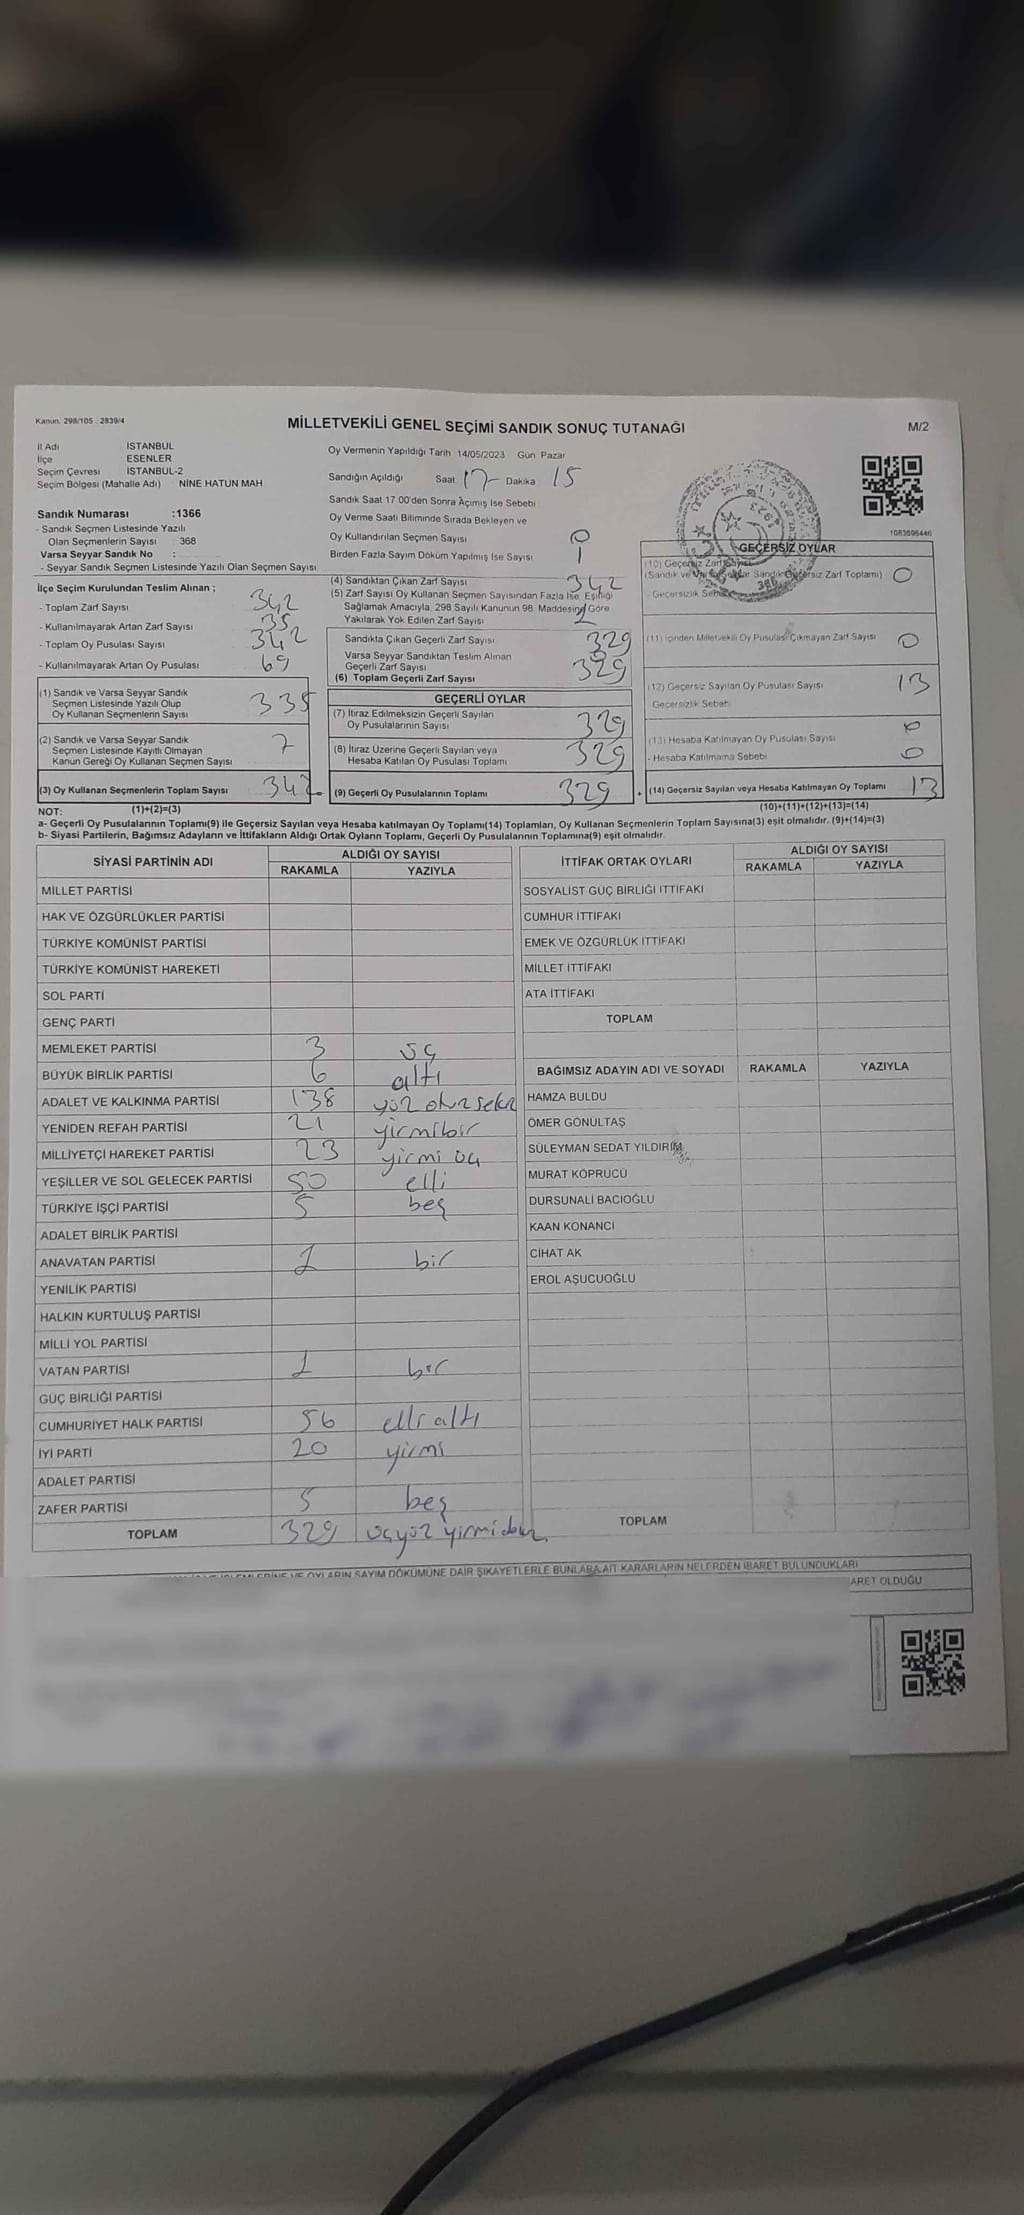 Kanun: 298/105 . 2839/4
MİLLETVEKİLİ GENEL SEÇİMİ SANDIK SONUÇ TUTANAĞI
M/2
İl Adı İSTANBUL
İlçe ESENLER
Seçim Çevresi İSTANBUL-2
Seçim Bölgesi (Mahalle Adı) NİNE HATUN MAH
Sandık Numarası :1366
- Sandık Seçmen Listesinde Yazılı
Olan Seçmenlerin Sayısı : 368
Varsa Seyyar Sandık No :
- Seyyar Sandık Seçmen Listesinde Yazılı Olan Seçmen Sayısı
İlçe Seçim Kurulundan Teslim Alınan ;
- Toplam Zarf Sayısı 342
- Kullanılmayarak Artan Zarf Sayısı 35
- Toplam Oy Pusulası Sayısı 342
- Kullanılmayarak Artan Oy Pusulası 69
(1) Sandık ve Varsa Seyyar Sandık
Seçmen Listesinde Yazılı Olup
Oy Kullanan Seçmenlerin Sayısı 335
(2) Sandık ve Varsa Seyyar Sandık
Seçmen Listesinde Kayıtlı Olmayan
Kanun Gereği Oy Kullanan Seçmen Sayısı 7
(3) Oy Kullanan Seçmenlerin Toplam Sayısı 342
Oy Vermenin Yapıldığı Tarih 14/05/2023 Gün Pazar
Sandığın Açıldığı Saat 17 Dakika 15
Sandık Saat 17 00'den Sonra Açımış İse Sebebi
Oy Verme Saati Bitiminde Sırada Bekleyen ve
Oy Kullandırılan Seçmen Sayısı 0
Birden Fazla Sayım Döküm Yapılmış İse Sayısı 1
(4) Sandıktan Çıkan Zarf Sayısı 342
(5) Zarf Sayısı Oy Kullanan Seçmen Sayısından Fazla İse, Eşitliği
Sağlamak Amacıyla; 298 Sayılı Kanunun 98. Maddesine Göre
Yakılarak Yok Edilen Zarf Sayısı
Sandıkta Çıkan Geçerli Zarf Sayısı 329
Varsa Seyyar Sandıktan Teslim Alınan
Geçerli Zarf Sayısı
(6) Toplam Geçerli Zarf Sayısı 329
GEÇERLİ OYLAR
(7) İtiraz Edilmeksizin Geçerli Sayılan
Oy Pusulalarının Sayısı 329
(8) İtiraz Üzerine Geçerli Sayılan veya
Hesaba Katılan Oy Pusulası Toplamı 329
(9) Geçerli Oy Pusulalarının Toplamı 329
1083696446
GEÇERSİZ OYLAR
(10) Geçersiz Zarf Sayısı
(Sandık ve Varsa Seyyar Sandık Geçersiz Zarf Toplamı) 0
- Geçersizlik Sebebi
(11) İçinden Milletvekili Oy Pusulası Çıkmayan Zarf Sayısı 0
(12) Geçersiz Sayılan Oy Pusulası Sayısı 13
Geçersizlik Sebebi
(13) Hesaba Katılmayan Oy Pusulası Sayısı 0
- Hesaba Katılmama Sebebi 0
(14) Geçersiz Sayılan veya Hesaba Katılmayan Oy Toplamı 13
NOT: (1)+(2)=(3)
(10)+(11)+(12)+(13)=(14)
a- Geçerli Oy Pusulalarının Toplamı(9) ile Geçersiz Sayılan veya Hesaba katılmayan Oy Toplamı(14) Toplamları, Oy Kullanan Seçmenlerin Toplam Sayısına(3) eşit olmalıdır. (9)+(14)=(3)
b- Siyasi Partilerin, Bağımsız Adayların ve İttifakların Aldığı Ortak Oyların Toplamı, Geçerli Oy Pusulalarının Toplamına(9) eşit olmalıdır.
SİYASİ PARTİNİN ADI
ALDIĞI OY SAYISI
RAKAMLA YAZIYLA
MİLLET PARTİSİ
HAK VE ÖZGÜRLÜKLER PARTİSİ
TÜRKİYE KOMÜNİST PARTİSİ
TÜRKİYE KOMÜNİST HAREKETİ
SOL PARTİ
GENÇ PARTİ
MEMLEKET PARTİSİ 3 üç
BÜYÜK BİRLİK PARTİSİ 6 altı
ADALET VE KALKINMA PARTİSİ 138 yüz otuz sekiz
YENİDEN REFAH PARTİSİ 21 yirmibir
MİLLİYETÇİ HAREKET PARTİSİ 23 yirmi üç
YEŞİLLER VE SOL GELECEK PARTİSİ 50 elli
TÜRKİYE İŞÇİ PARTİSİ 5 beş
ADALET BİRLİK PARTİSİ
ANAVATAN PARTİSİ 1 bir
YENİLİK PARTİSİ
HALKIN KURTULUŞ PARTİSİ
MİLLİ YOL PARTİSİ
VATAN PARTİSİ 1 bir
GÜÇ BİRLİĞİ PARTİSİ
CUMHURİYET HALK PARTİSİ 56 elli altı
İYİ PARTİ 20 yirmi
ADALET PARTİSİ
ZAFER PARTİSİ 5 beş
TOPLAM 329 üçyüz yirmidokuz
İTTİFAK ORTAK OYLARI
ALDIĞI OY SAYISI
RAKAMLA YAZIYLA
SOSYALİST GÜÇ BİRLİĞİ İTTİFAKI
CUMHUR İTTİFAKI
EMEK VE ÖZGÜRLÜK İTTİFAKI
MİLLET İTTİFAKI
ATA İTTİFAKI
TOPLAM
BAĞIMSIZ ADAYIN ADI VE SOYADI RAKAMLA YAZIYLA
HAMZA BULDU
ÖMER GÖNÜLTAŞ
SÜLEYMAN SEDAT YILDIRIM
MURAT KÖPRÜCÜ
DURSUNALİ BACIOĞLU
KAAN KONANCI
CİHAT AK
EROL AŞUCUOĞLU
TOPLAM
VE OYLARIN SAYIM DÖKÜMÜNE DAİR ŞİKAYETLERLE BUNLARA AİT KARARLARIN NELERDEN İBARET BULUNDUKLARI
ARET OLDUĞU